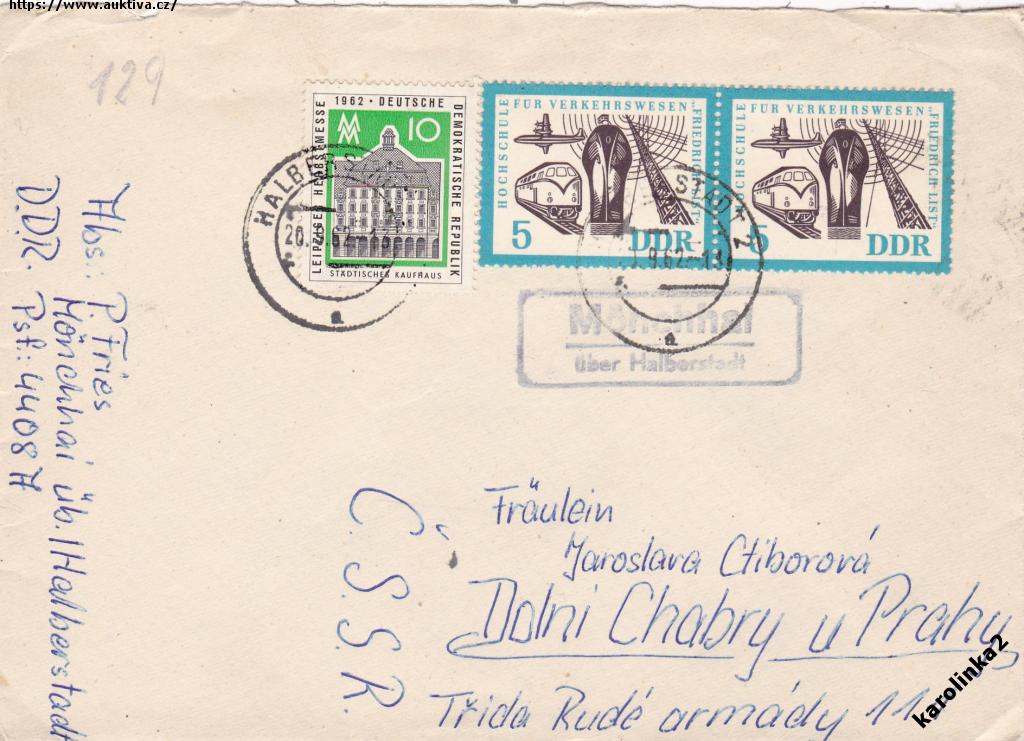 https://www.auktiva.cz/
129
LEIPZIGER HERBSTMESSE 1962 · DEUTSCHE DEMOKRATISCHE REPUBLIK
MM
10
STÄDTISCHES KAUFHAUS
HOCHSCHULE FÜR VERKEHRSWESEN „FRIEDRICH LIST“
5 DDR
HOCHSCHULE FÜR VERKEHRSWESEN „FRIEDRICH LIST“
5 DDR
HALBERS
a
STADT 1
9.62-13
a
Mönchhai
über Halberstadt
Abs.: P. Fries
Mönchhai üb./Halberstadt
D.D.R. Psf.: 44087
Č.S.S.R.
Fräulein
Jaroslava Ctiborová
Dolni Chabry u Prahy
Třida Rudé armády
karolinka2